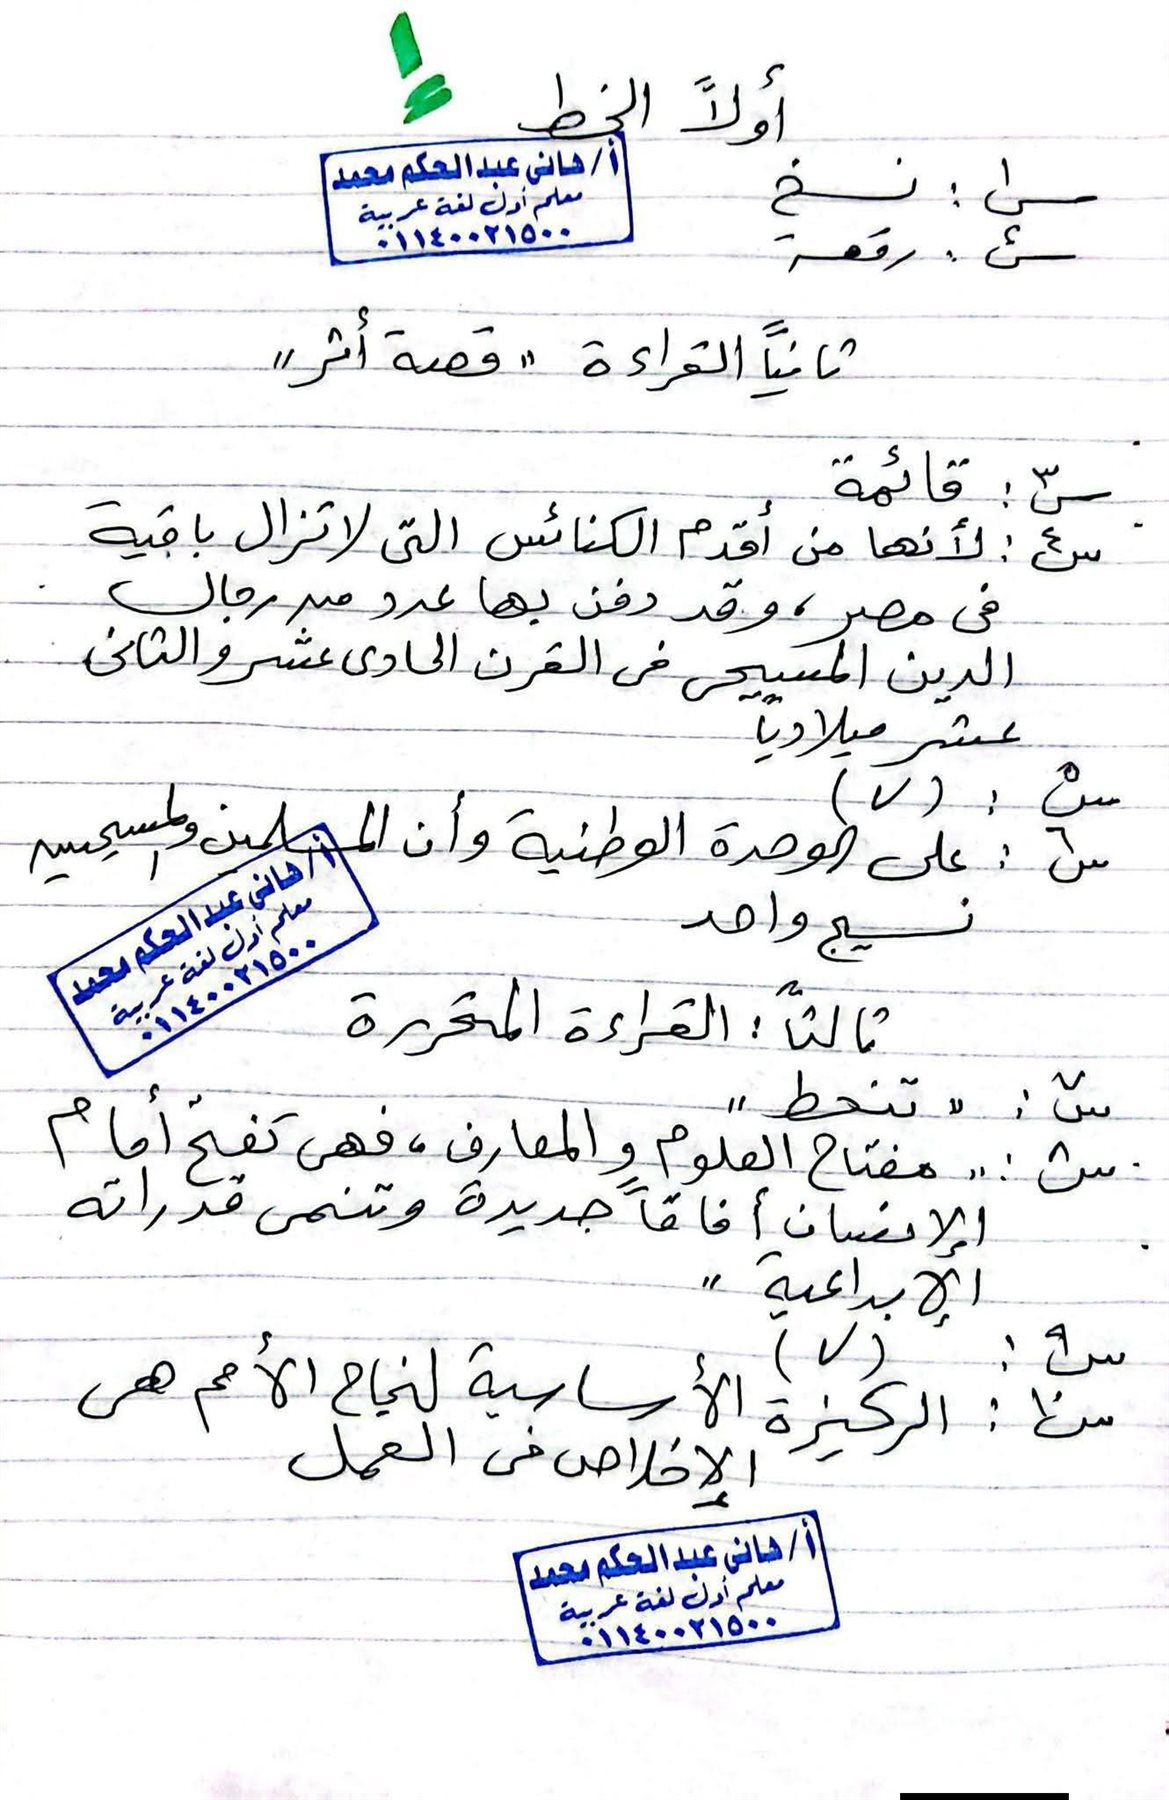 أولاً الخط
أ/ هانى عبد الحكم محمد
معلم أول لغة عربية
٠١١٤٠٠٢١٥٠٠
س١: نسخ
س٢: رقعة
ثانياً القراءة "قصة أثر"
س٣: قائمة
س٤: لأنها من أقدم الكنائس التى لاتزال باقية
فى مصر، وقد دفن بها عدد من رجال
الدين المسيحى فى القرن الحادى عشر والثانى
عشر ميلادياً
س٥: (✓)
س٦: على الوحدة الوطنية وأن المسلمين والمسيحيين
نسيج واحد
أ/ هانى عبد الحكم محمد
معلم أول لغة عربية
٠١١٤٠٠٢١٥٠٠
ثالثاً: القراءة المتحررة
س٧: "تنحط"
س٨: "مفتاح العلوم والمعارف، فهى تفتح أمام
الإنسان أفاقاً جديدة وتنمى قدراته
الإبداعية"
س٩: (✓)
س١٠: الركيزة الأساسية لنجاح الأمم هى
الإخلاص فى العمل
أ/ هانى عبد الحكم محمد
معلم أول لغة عربية
٠١١٤٠٠٢١٥٠٠